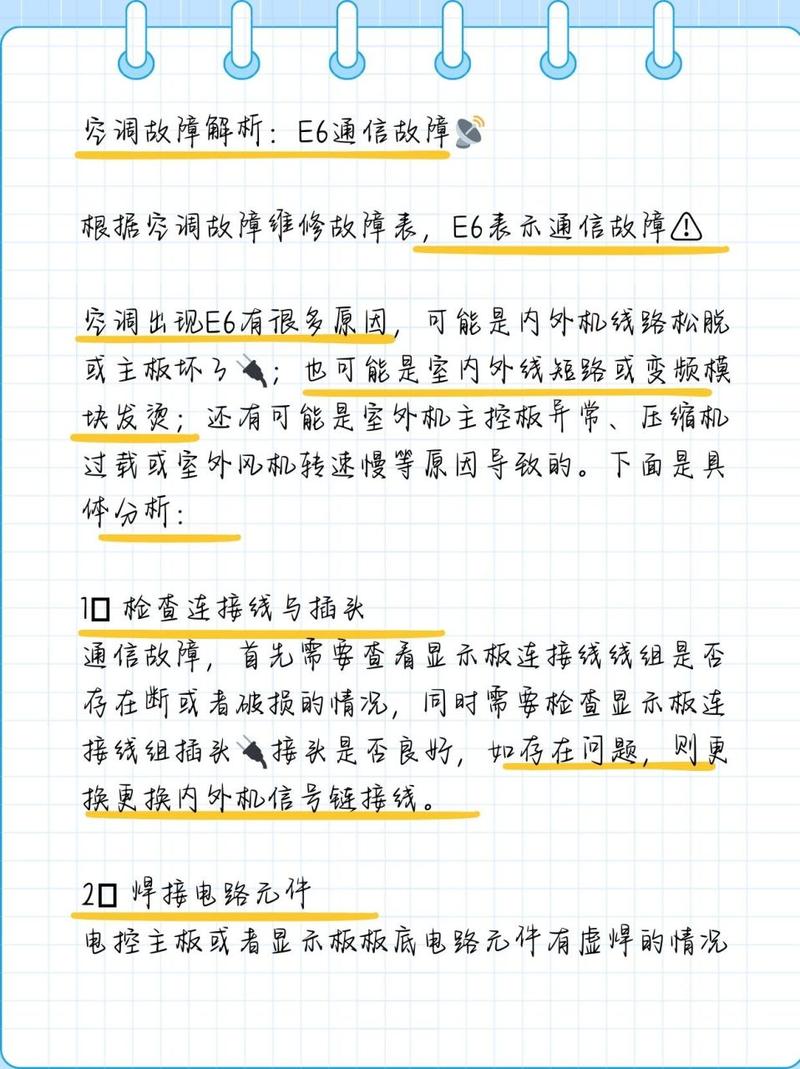 空调故障解析：E6通信故障📡
根据空调故障维修故障表，E6表示通信故障⚠
空调出现E6有很多原因，可能是内外机线路松脱
或主板坏了🔌；也可能是室内外线短路或变频模
块发烫；还有可能是室外机主控板异常、压缩机
过载或室外风机转速慢等原因导致的。下面是具
体分析：
1□ 检查连接线与插头
通信故障，首先需要查看显示板连接线线组是否
存在断或者破损的情况，同时需要检查显示板连
接线组插头🔌接头是否良好，如存在问题，则更
换更换内外机信号链接线。
2□ 焊接电路元件
电控主板或者显示板板底电路元件有虚焊的情况